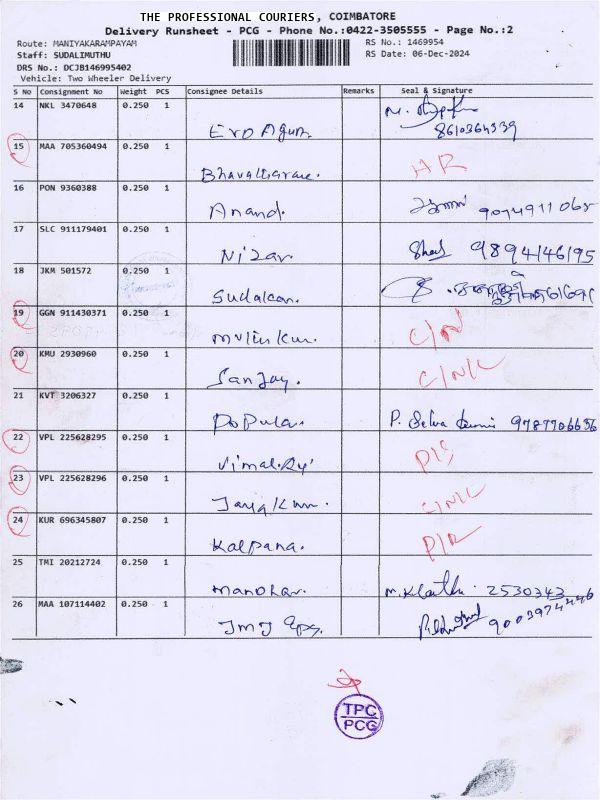 THE PROFESSIONAL COURIERS, COIMBATORE
Delivery Runsheet - PCG - Phone No.:0422-3505555 - Page No.:2
Route: MANIYAKARAMPAYAM RS No.: 1469954
Staff: SUDALIMUTHU RS Date: 06-Dec-2024
DRS No.: DCJB146995402
Vehicle: Two Wheeler Delivery
S No Consignment No Weight PCS Consignee Details Remarks Seal & Signature
14 NKL 3470648 0.250 1
8610364339
15 MAA 705360494 0.250 1
16 PON 9360388 0.250 1
Anand.
17 SLC 911179401 0.250 1
Nizar. 9894146195
18 JKM 501572 0.250 1
Sudakar.
19 GGN 911430371 0.250 1
C/N
20 KMU 2930960 0.250 1
Sanjay.
21 KVT 3206327 0.250 1
Popular. P. Selva
22 VPL 225628295 0.250 1
23 VPL 225628296 0.250 1
24 KUR 696345807 0.250 1
Kalpana. P/R
25 TMI 20212724 0.250 1
Manohar. 2530343
26 MAA 107114402 0.250 1
9003974446
TPC
PCG